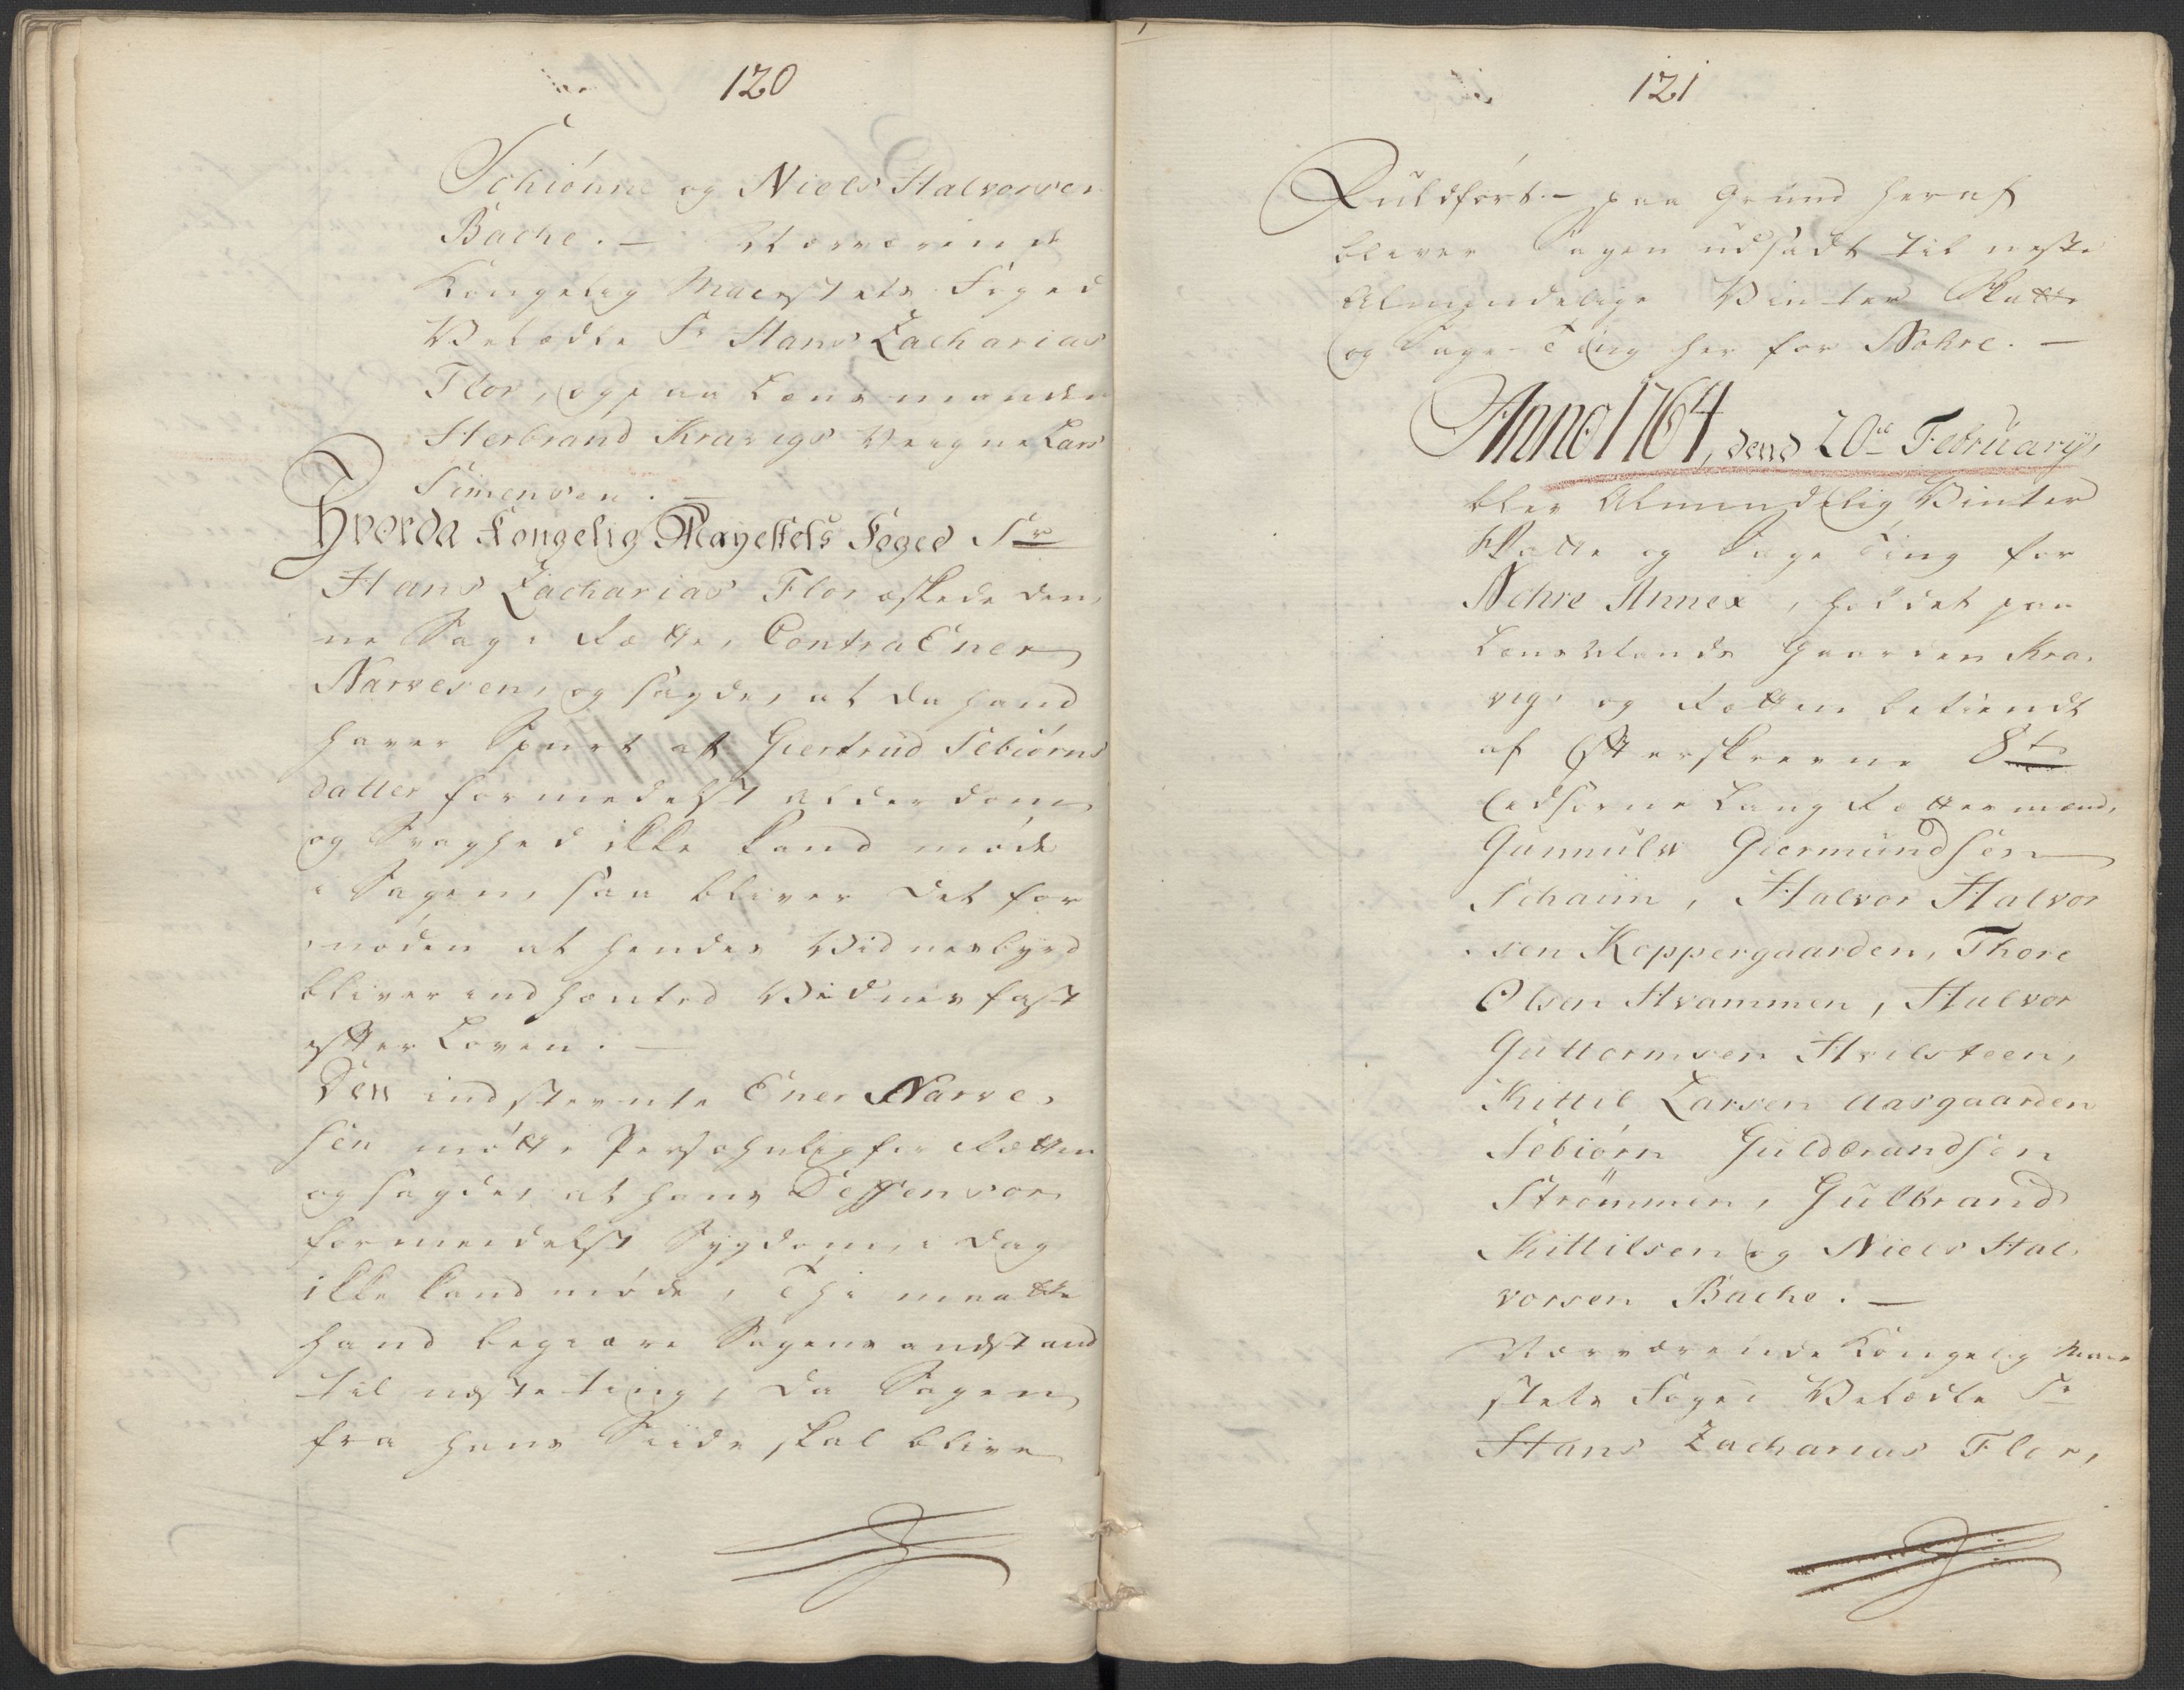 120
Schiønne og Niels Halvorsen
Bache. — Nærværende
Kongelig Maiestets Foged
Velædle Sr Hans Zacharias
Flor, og paa Lensmanden
Herbrand Kravigs Vegne Lars
Simensen. —
Hvorda Kongelig Mayestets Foged Sr
Hans Zacharias Flor æskede den,
ne Sag i Rætte, Contra Ener
Narvesen, og sagde, at da hand
haver Spurt at Giertrud Sebiørns
datter formedelst Alderdom
og Svaghed ikke kand møde
i Sagen, saa bliver det for
nøden at hendes Vidnesbyrd
bliver indhented Vidnes fast
efter Loven. —
Den indstevnte Ener Narve,
sen møtte Persohnlig for Rætten
og sagde, at hans Deffensor
formeidelst Sygdom i dag
ikke kand møde, Thi maatte
hand begiære Sagens andstand
til neste ting, da Sagen
fra hans Siide skal blive
121
Fuldført — paa Grund heraf
bliver Sagen udsadt til neste
Almindelige Vinter Skatte
og Sage-Ting her for Nohre. —
Anno 1764, dend 20de February,
blev Almindelig Vinter
Skatte og Sage Ting for
Nohre Annex, holdet paa
Lensmands Gaarden Kra,
vig, og Rætten betiendt
af Efterskrevne 8te
Eedsorne Laug Rættes mænd,
Gunnulv Giermundsen
Schaim, Halvor Halvor
sen Koppergaarden, Thore
Olsen Hvammen, Halvor
Guttormsen Hvilsteen,
Kittil Larsen Aasgaarden
Sebiørn Guldbrandsen
Strømmen, Gulbrand
Kittilsen og Niels Hal,
vorsen Bache. —
Nærværende Kongelig Maie
stets Foged Velædle Sr
Hans Zacharias Flor,